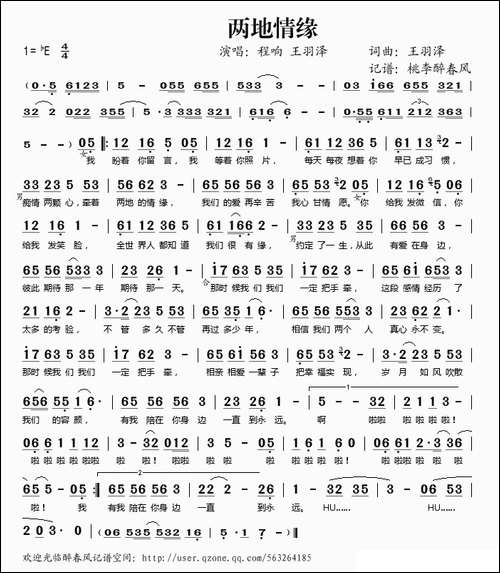 两地情缘
1=♭E 4/4 演唱：程响 王羽泽 词曲：王羽泽
记谱：桃李醉春风
(0·5 6123 | 5 - 055 655 | 533 3 - - | 03 i66 655 321 |
32 2 022 355 | 5·3 333 321 | 616 6 - - | 0·55 611 212 363 |
5 - -) 05 ‖: 12 16 5 05 | 12 16 1 - | 61 12 36 61 | 13 2 - - |
女 我 盼着 你留 言，我 等着 你照 片， 每天 每夜 想着 你 早已 成习 惯，
33 23 5 53 | 56 62 3 - | 65 56 56 53 | 23 35 2 05 | 12 16 5 05 |
男 痴情 两颗 心，牵着 两地 的情 缘， 我们 的爱 再辛 苦 我心 甘情 愿。女你 给我 发微 信，你
12 16 1 - | 61 12 36 5 | 61 166 2 - | 33 23 5 53 | 56 62 3 - |
给我 发笑 脸， 全世 界人 都知 道 我们 很有 缘， 男 约定 了一 生，从此 有爱 在身 边，
65 56 533 3 | 23 26 1 - | i7 63 5 35 | i7 63 5 - | 65 6i 653 3 |
彼此 期待 那一 年 期待 那一 天。 合 那时 候我 们我们 一定 把手 牵， 这段 感情 经历 了
21 16 2 - | 3·2 23 5 53 | 25 35 16 6 | 65 56 53 3 | 23 62 2 1 - |
太多 的考 验， 不 管 多久 不管 再过 多少 年， 相信 我们 两个 人 真心 永不 变。
i7 63 5 35 | i7 63 5 - | 65 6i 65 3 | 21 16 2 - | 3·2 23 5 53 |
那时 候我 们我们 一定 把手 牵， 相亲 相爱 一辈 子 把幸 福实 现， 岁 月 如风 吹散
656 55 5 - | 65 56 56 3 | 23 26 1 - | 5 - - 32 | 2 11 1 - |
我们 的容 颜， 有我 陪在 你身 边 一直 到永 远。 啊 啦啦 啦 啦啦 啦！
06 61 1 12 | 3 - 32 012 | 3 - - 05 | 1 61 60 | 06 61 2·3 36 |
啦 啦啦 啦 啦啦 啦！ 啦啦 啦啦 啦！ 啦 啦 啦啦 啦！ 啦 啦啦 啦 啦 啦啦
65 5 - 05 :‖ 65 56 56 3 | 22 2 - 6 | 1 - - 35 | 3 - 06 53 |
啦！ 我 有我 陪在 你身 边 一直 到 永 远。 HU...... HU......
2 03 2 1 - | (06 535 532 16 | 5· 1 7 - ) ‖
欢迎光临醉春风记谱空间：http://user.qzone.qq.com/563264185